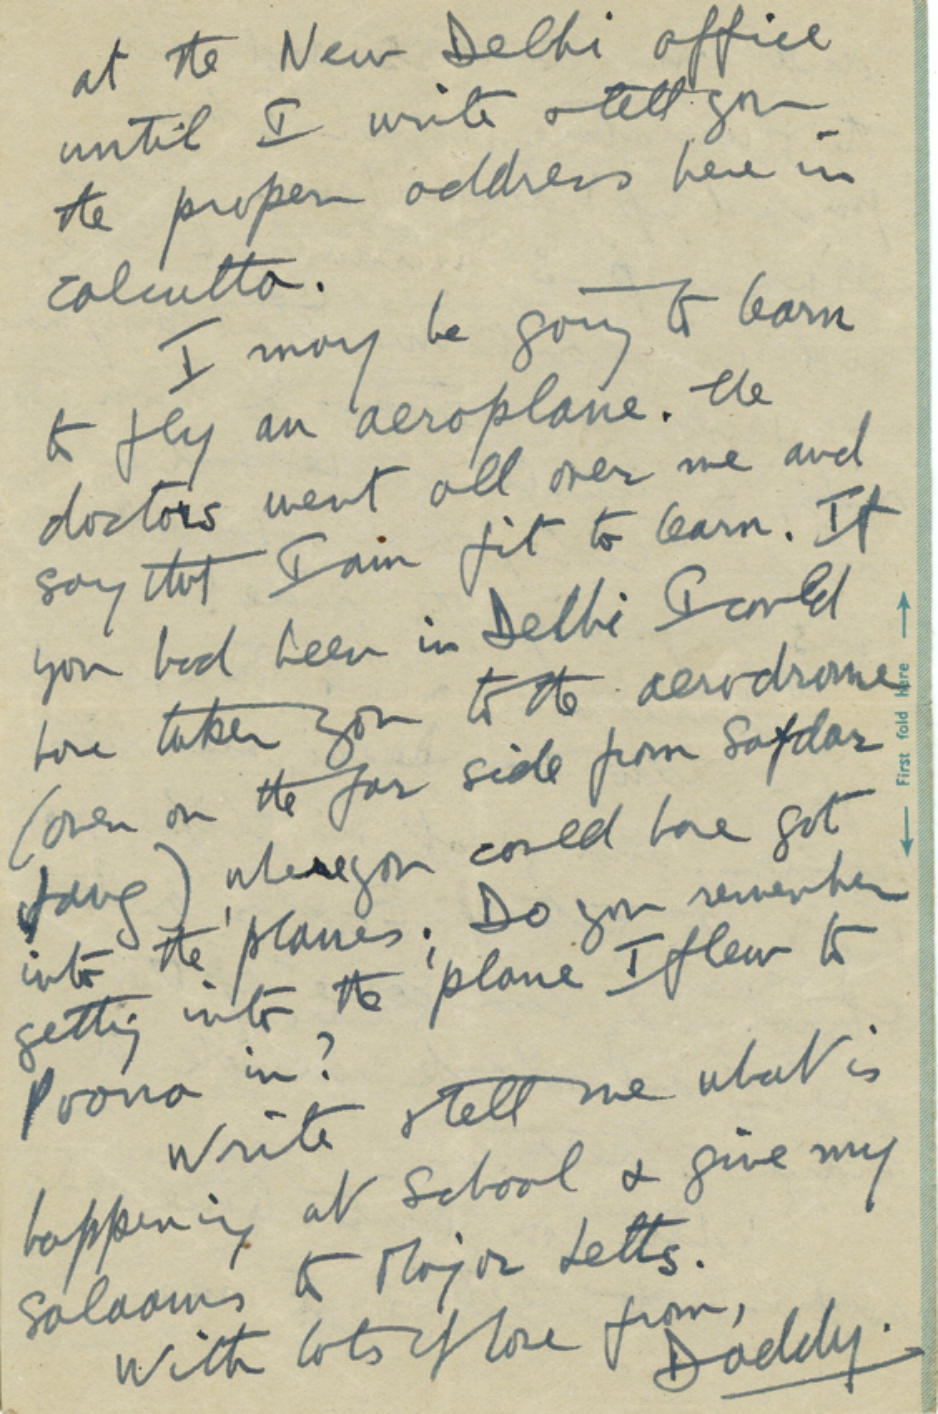 at the New Delhi office
until I write & tell you
the proper address here in
Calcutta.
I may be going to learn
to fly an aeroplane. The
doctors went all over me and
say that I am fit to learn. If
you had been in Delhi I could
have taken you to the aerodrome
(over on the far side from Safdar
Jang) where you could have got
into the 'planes. Do you remember
getting into the 'plane I flew to
Poona in?
Write & tell me what is
happening at School & give my
salaams to Major Letts.
With lots of love from,
Daddy.
First fold here